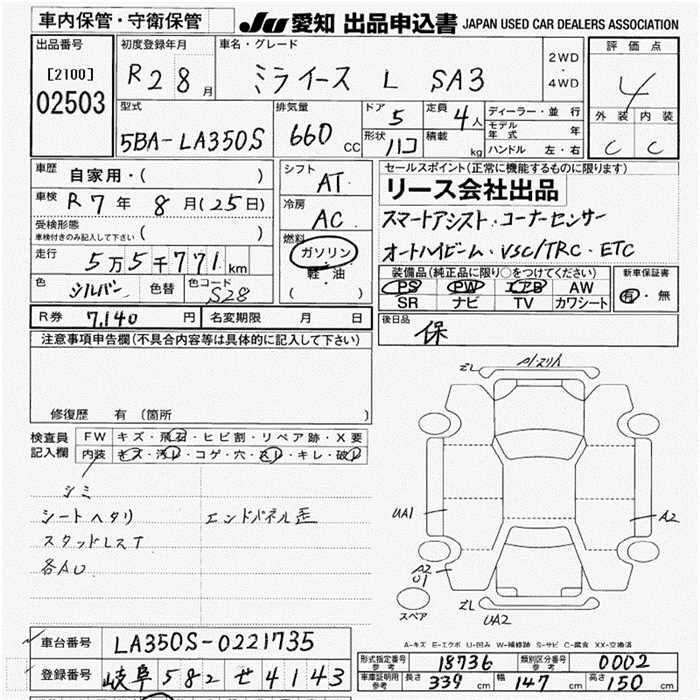 車内保管・守衛保管
JU 愛知 出品申込書 JAPAN USED CAR DEALERS ASSOCIATION
出品番号 [2100] 02503
初度登録年月 R2 8月
車名・グレード ミライース L SA3
2WD・4WD
評価点 4
外装 C 内装 C
型式 5BA-LA350S
排気量 660 CC
ドア 5
定員 4人
形状 ハコ
積載 kg
ディーラー・並行
モデル年式 年
ハンドル 左・右
車歴 自家用・( )
車検 R7年 8月(25日)
受検形態 車検付きのみ記入して下さい ( )
走行 5万5千771km
色 シルバー 色替 色コード S28
シフト AT
冷房 AC
燃料 ガソリン・軽・油 ( )
セールスポイント(正常に機能するものに限ります)
リース会社出品
スマートアシスト・コーナーセンサー
オートハイビーム・VSC/TRC・ETC
装備品(純正品に限り○をつけてください)
PS PW エアB AW
SR ナビ TV カワシート
新車保証書 有・無
R券 7,140円 名変期限 月 日
後日品 保
注意事項申告欄(不具合内容等は具体的に記入して下さい)
修復歴 有 (箇所 )
検査員記入欄
FW キズ・飛石・ヒビ割・リペア跡・X要
内装 キズ・汚レ・コゲ・穴・スレ・キレ・破レ
シミ
シートヘタリ エンドパネル歪
スタッドレスT
各AU
ズレ
UA1
A2
A2 U1
スペア
ズレ UA2
A-キズ E-エクボ U-凹み W-補修跡 S-サビ C-腐食 XX-交換済
車台番号 LA350S-0221735
登録番号 岐阜 582 せ 4143
形式指定番号 参考 18736 類別区分番号 参考 0002
車庫証明用 参考 長さ 339 cm 幅 147 cm 高さ 150 cm